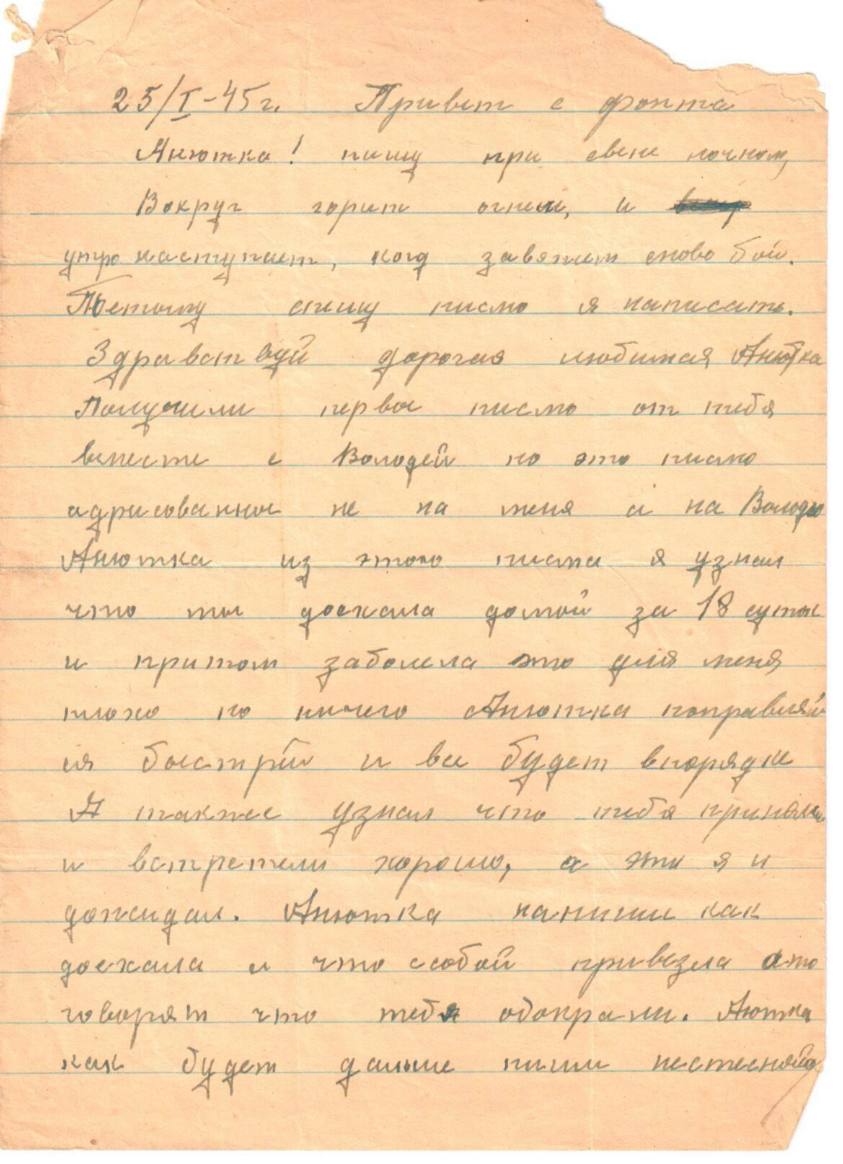 25/I-45г. Привет с фронта
Анютка! пишу при свете ночном,
Вокруг горит огнем, и
утро наступает, когд завяжем снова бой.
Поетому спешу писмо я написать.
Здравствуй дорогая любимая Анютка
Получили первое писмо от тебя
вместе с Володей но это писмо
адрисованное не на меня а на Володю
Анютка из этого писма я узнал
что ты доехала домой за 18 суток
и притом заболела это для меня
плохо но ничего Анютка поправляй
ся быстрей и все будет впорядке
Я также узнал что тебя приняли
и встретели хорошо, а это я и
дожидал. Анютка напиши как
доехала и что ссобой привезла ато
говорят что тебя обокрали. Анютка
как будет дальше пиши нестесняйся